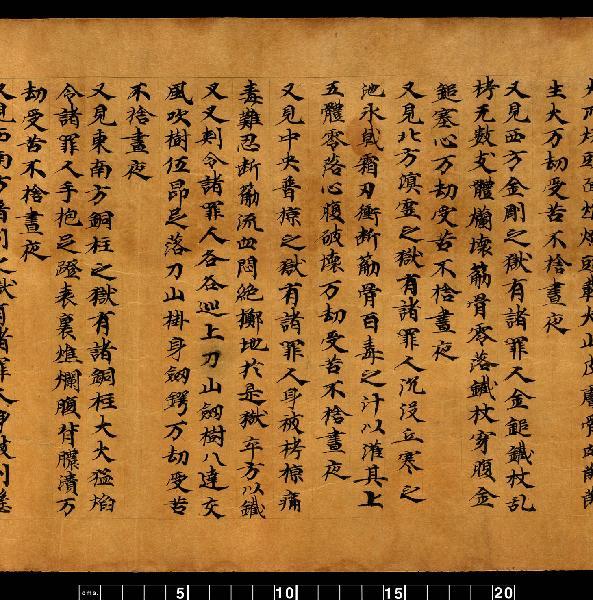 生大万劫受苦不捨晝夜
又見西方金剛之獄有諸罪人金鎚鐵杖乱
拷无數支體爛壞筋骨零落鐵杖穿腹金
鎚塞心万劫受苦不捨晝夜
又見北方溟霊之獄有諸罪人沉没立寒之
池氷戟霜刃衝断筋骨百毒之汁以灌其上
五體零落心腹破壞万劫受苦不捨晝夜
又見中央普掠之獄有諸罪人身被拷掠痛
毒難忍断筋流血悶絶擲地於是獄卒方以鐵
叉叉刾令諸罪人各各巡上刀山劔樹八達交
風吹樹伍昂足落刀山掛身劔鍔万劫受苦
不捨晝夜
又見東南方銅柱之獄有諸銅柱大火猛焰
令諸罪人手抱足蹬表裏燋爛腹背膿潰万
劫受苦不捨晝夜
又見西南方